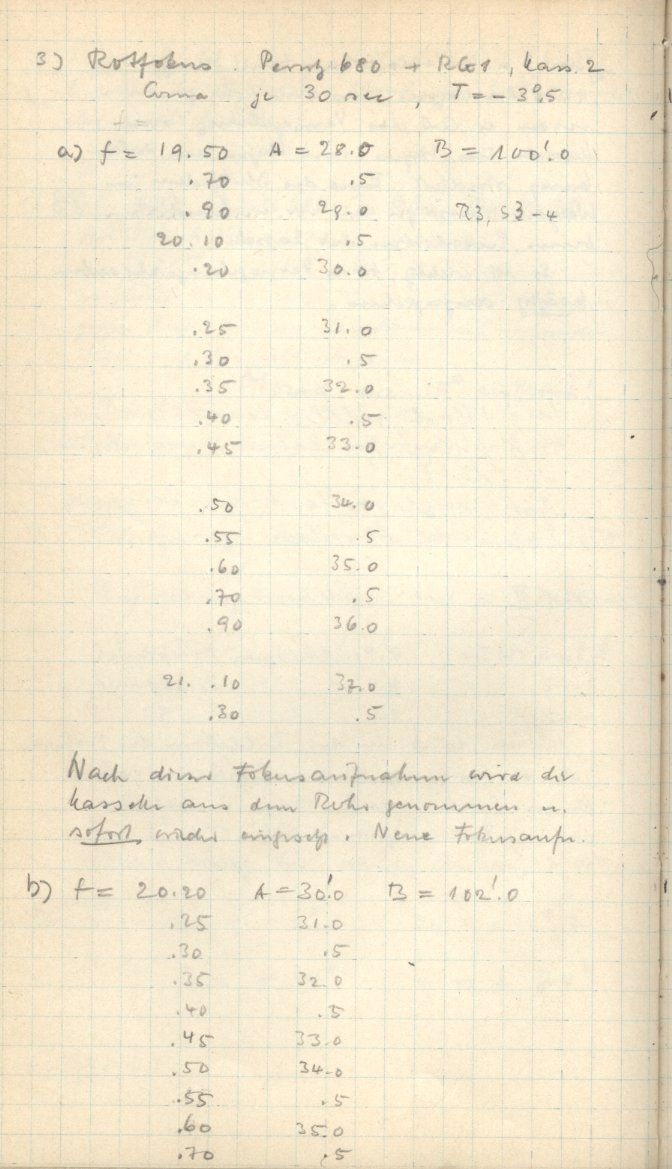 3) Rotfokus. Perutz 680 + RG1, Kass. 2
je 30 sec, T = -3°,5
a) f = 19.50 A = 28.0 B = 100'.0
.70 .5
.90 29.0 R3, S3-4
20.10 .5
.20 30.0
.25 31.0
.30 .5
.35 32.0
.40 .5
.45 33.0
.50 34.0
.55 .5
.60 35.0
.70 .5
.90 36.0
21. .10 37.0
.30 .5
Nach dieser Fokusaufnahme wird die
Kassette aus dem Rohr genommen u.
sofort wieder eingesetzt. Neue Fokusaufn.
b) f = 20.20 A = 30'.0 B = 102'.0
.25 31.0
.30 .5
.35 32.0
.40 .5
.45 33.0
.50 34.0
.55 .5
.60 35.0
.70 .5